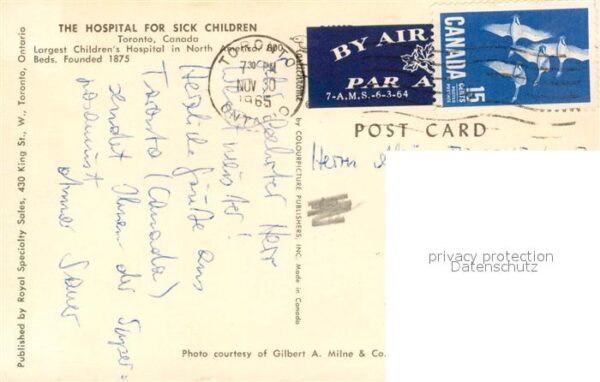 THE HOSPITAL FOR SICK CHILDREN
Toronto, Canada
Largest Children's Hospital in North America. 800
Beds. Founded 1875
TORONTO
7 30 PM
NOV 30
1965
ONTARIO
BY AIR
PAR A
7-A.M.S.-6-3-64
CANADA
POSTES POSTAGE
15
POST CARD
Herrn
Herr
Herzliche Grüße aus
Toronto (Canada)
sendet Ihnen der
Published by Royal Specialty Sales, 430 King St., W., Toronto, Ontario
Plastichrome by COLOURPICTURE PUBLISHERS, INC. Made in Canada
Photo courtesy of Gilbert A. Milne & Co.
privacy protection
Datenschutz